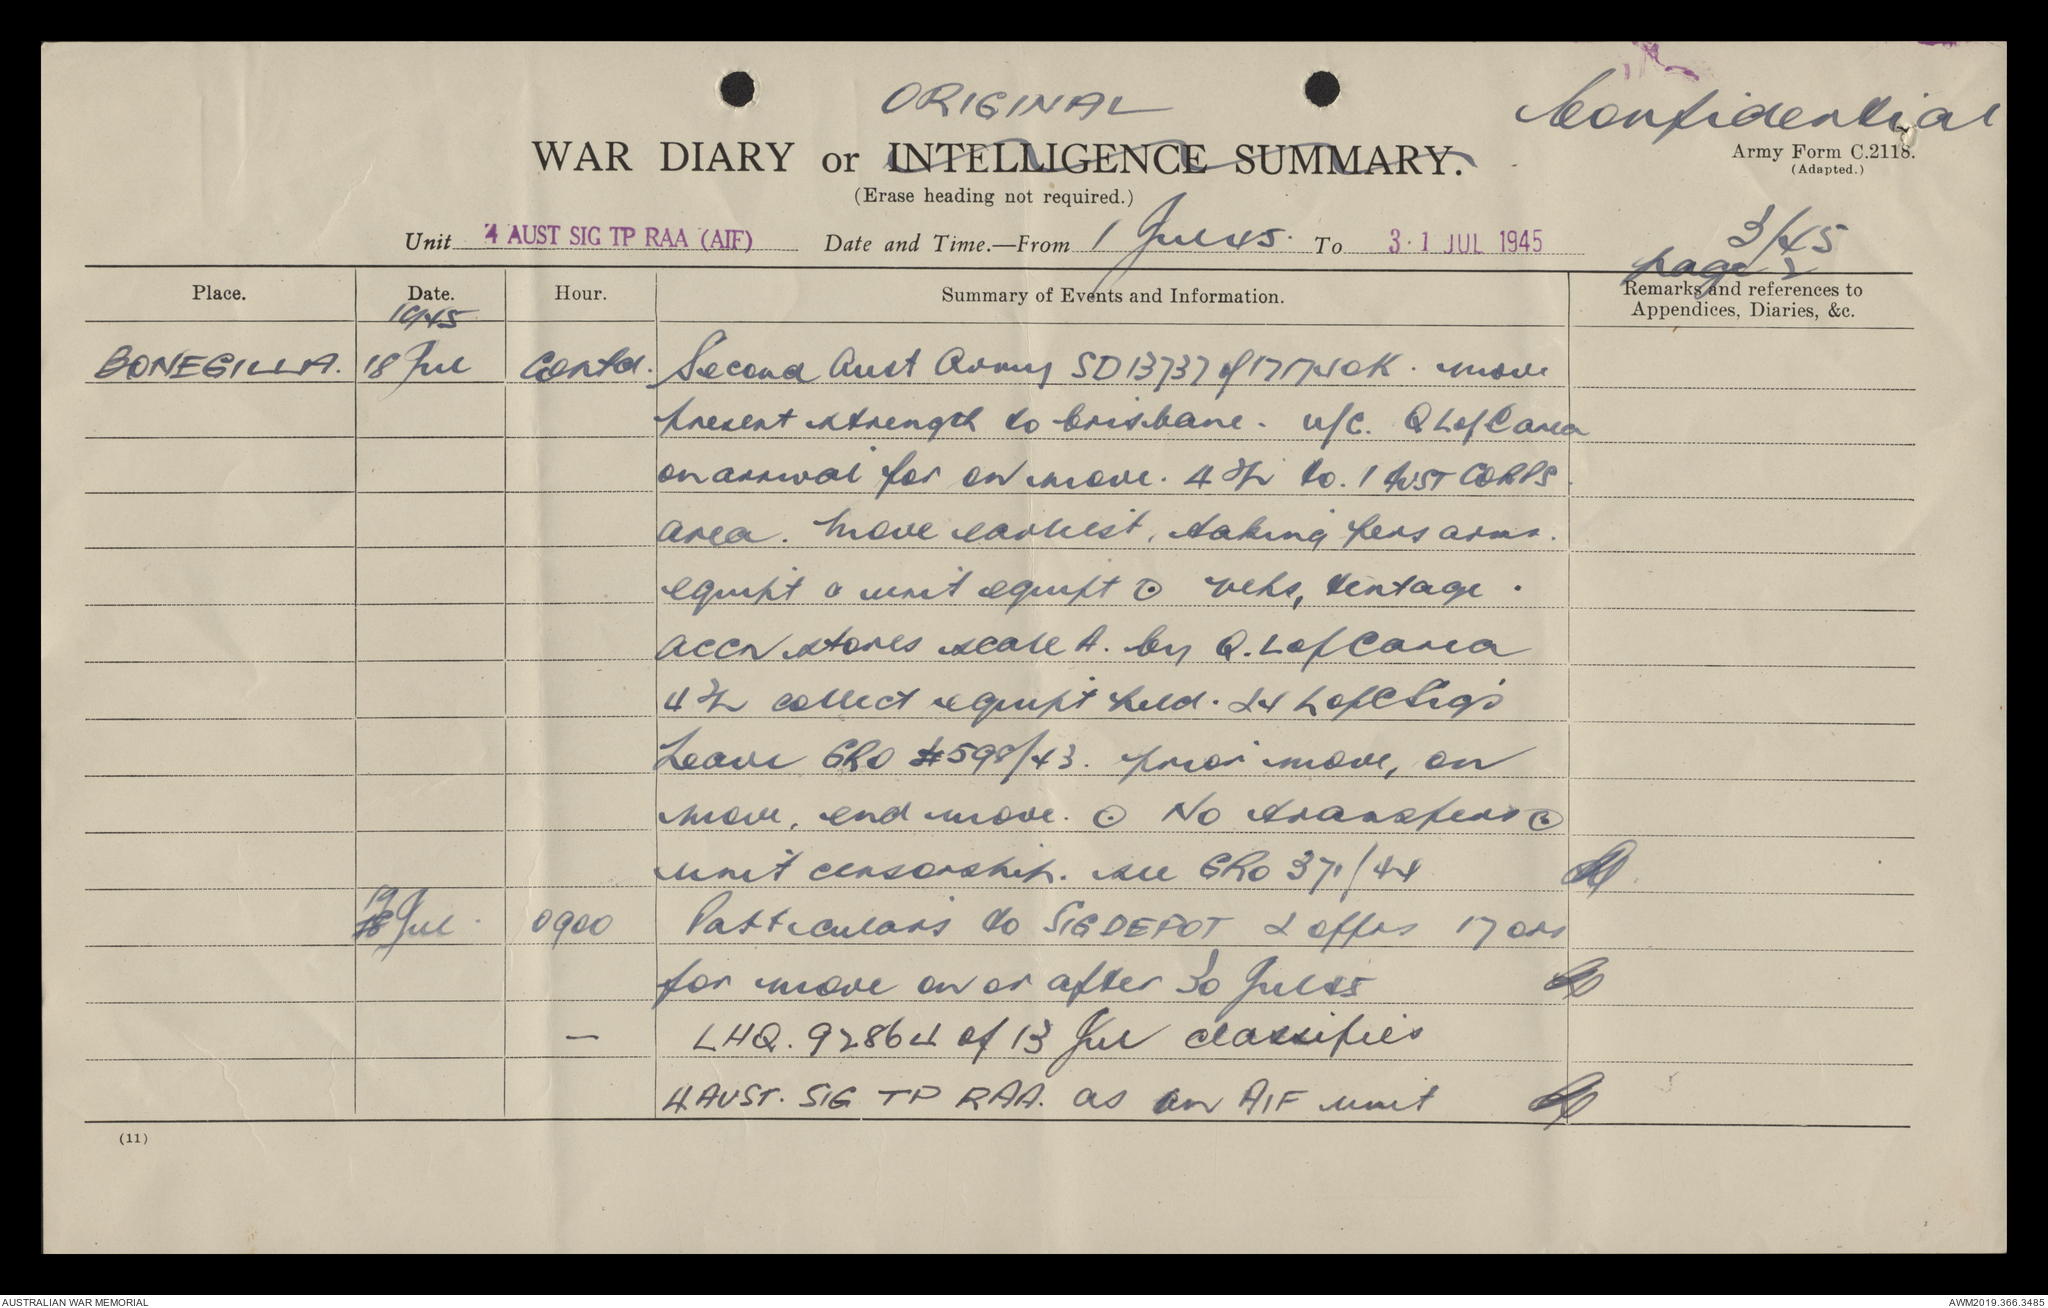 ORIGINAL
Confidential
WAR DIARY or INTELLIGENCE SUMMARY.
Army Form C.2118.
(Adapted.)
(Erase heading not required.)
3/45
Unit 4 AUST SIG TP RAA (AIF) Date and Time.—From 1 Jul 45. To 31 JUL 1945
page 2
Place. Date. Hour. Summary of Events and Information. Remarks and references to
Appendices, Diaries, &c.
1945
BONEGILLA. 18 Jul Contd. Second Aust Army SD13737 of 17 move
present strength to brisbane. u/c. Q L of C area
on arrival for on move. to. 1 AUST CORPS
area. Move earliest, taking pers arms.
equipt & unit equipt ⊙ vehs, tentage.
accn stores scale A. by Q. L of C area
collect equipt held. L of C Sigs
Leave GRO 598/43. prior move, on
move, end move. ⊙ No transfers ⊙
unit censorship. see GRO 371/44
19 Jul 0900 Particulars to SIG DEPOT 2 offrs 17 ors
for move on or after 30 Jul 45
— LHQ. 92864 of 13 Jul classifies
4 AUST. SIG TP RAA. as an AIF unit
(11)
AUSTRALIAN WAR MEMORIAL
AWM2019.366.3485